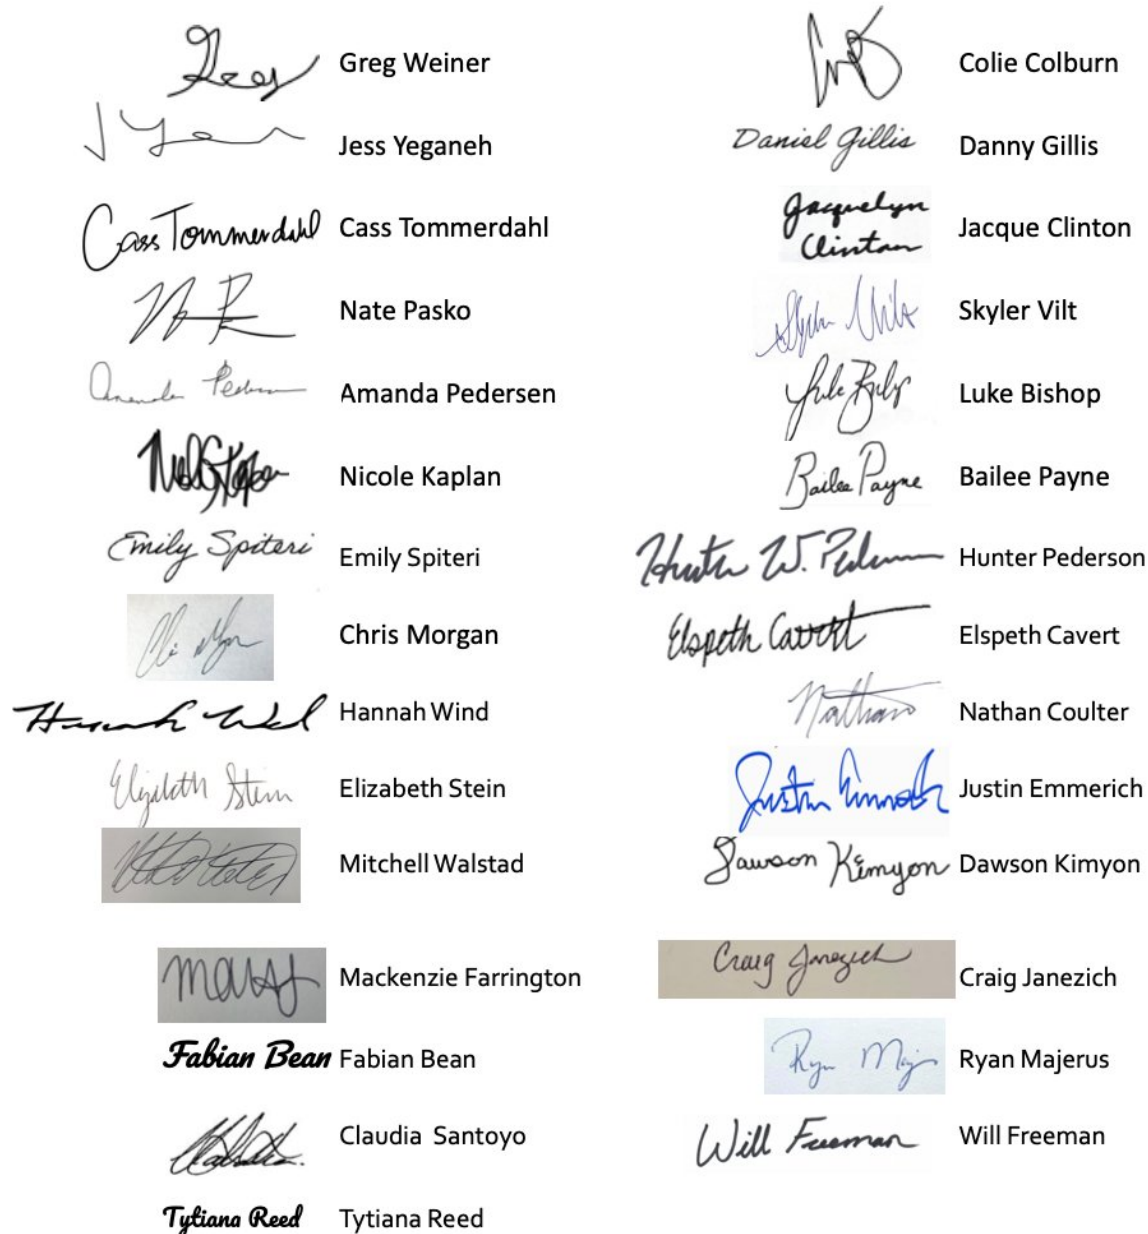 Greg Weiner
Jess Yeganeh
Cass Tommerdahl Cass Tommerdahl
Nate Pasko
Amanda Pedersen
Nicole Kaplan
Emily Spiteri Emily Spiteri
Chris Morgan
Hannah Wind
Elizabeth Stein Elizabeth Stein
Mitchell Walstad
Mackenzie Farrington
Fabian Bean Fabian Bean
Claudia Santoyo
Tytiana Reed Tytiana Reed
Colie Colburn
Daniel Gillis Danny Gillis
Jacquelyn
Clinton Jacque Clinton
Skyler Vilt
Luke Bishop
Bailee Payne Bailee Payne
Hunter W. Hunter Pederson
Elspeth Cavert Elspeth Cavert
Nathan Nathan Coulter
Justin Justin Emmerich
Dawson Kimyon Dawson Kimyon
Craig Janezich Craig Janezich
Ryan Majerus
Will Freeman Will Freeman